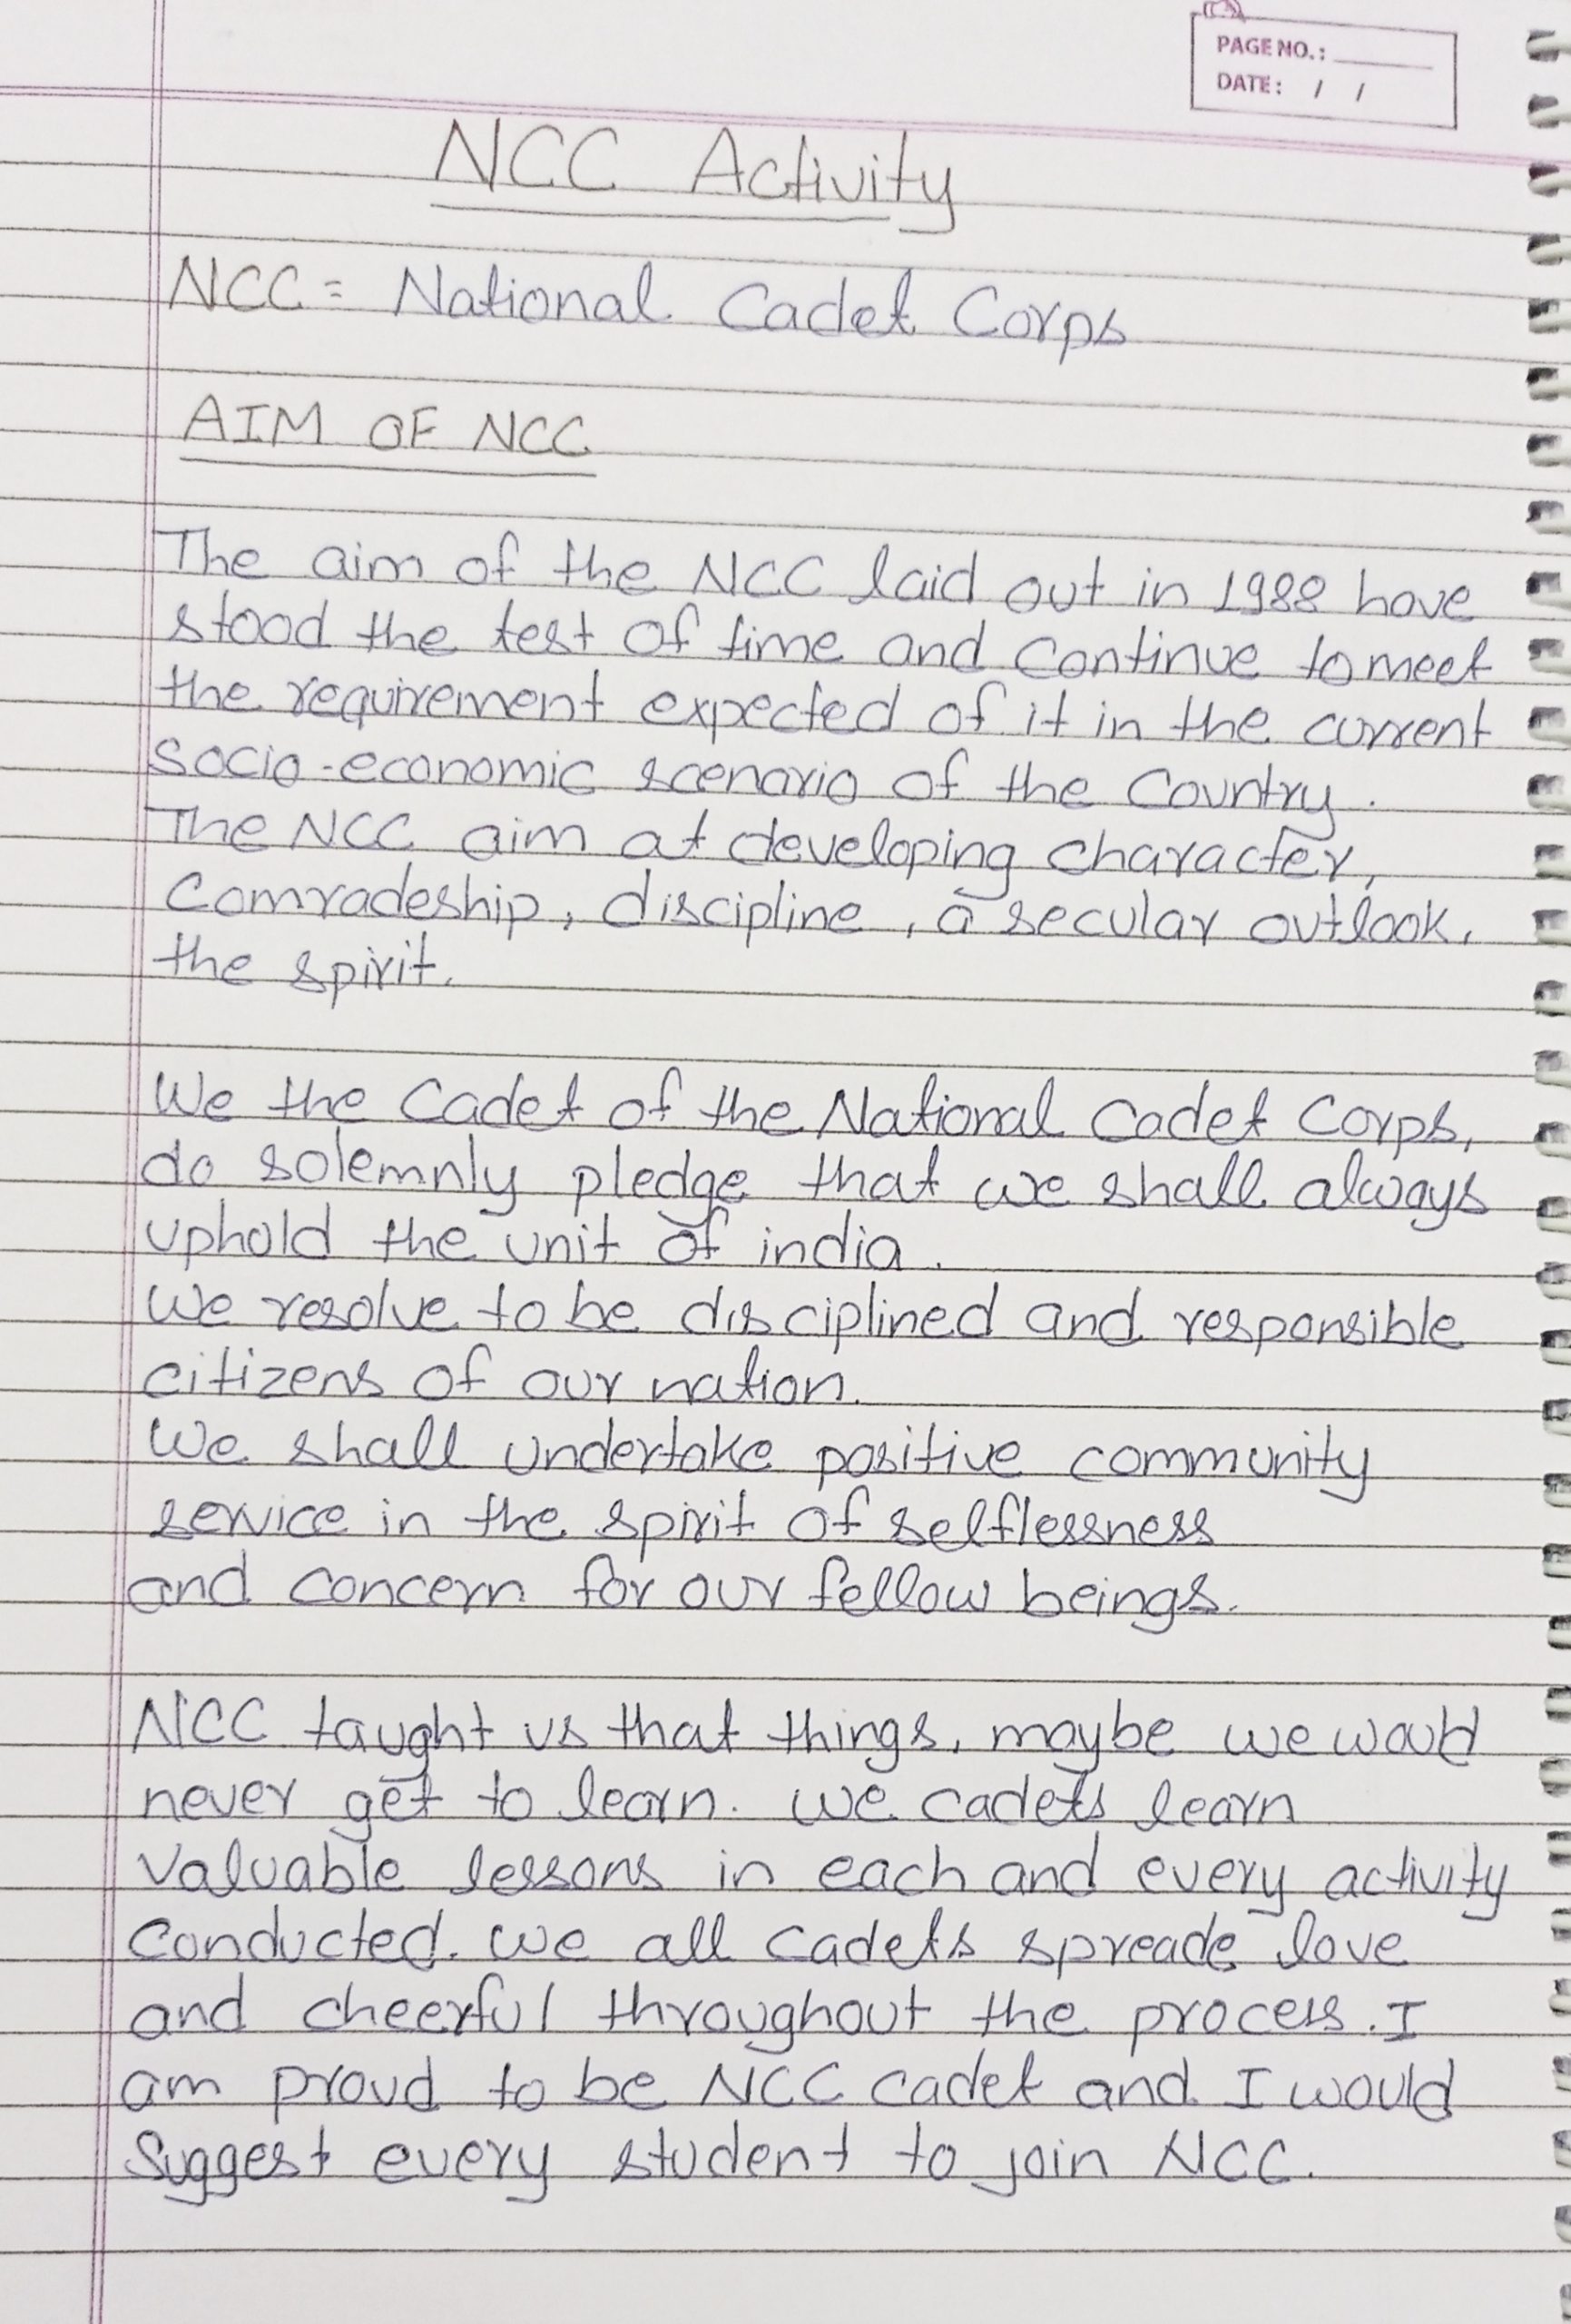 PAGE NO.:
DATE: / /
NCC Activity
NCC = National Cadet Corps
AIM OF NCC
The aim of the NCC laid out in 1988 have
stood the test of time and continue to meet
the requirement expected of it in the current
socio-economic scenario of the Country.
The NCC aim at developing character,
Comradeship, discipline, a secular outlook,
the spirit.
We the Cadet of the National Cadet Corps,
do solemnly pledge that we shall always
uphold the unit of india.
We resolve to be disciplined and responsible
citizens of our nation.
We shall undertake positive community
service in the spirit of selflessness
and concern for our fellow beings.
NCC taught us that things, maybe we would
never get to learn. we cadets learn
valuable lessons in each and every activity
Conducted. we all cadets spreade love
and cheerful throughout the process. I
am proud to be NCC cadet and I would
Suggest every student to join NCC.